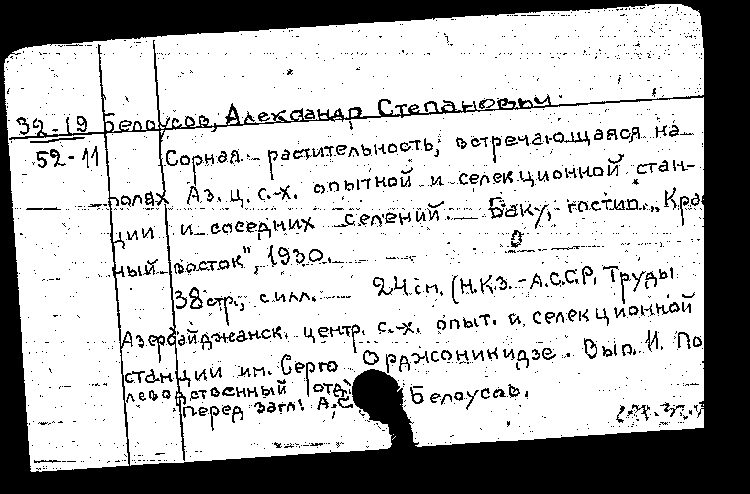 32-19 Белоусов, Александр Степанович.
52-11 Сорная растительность, встречающаяся на
полях Аз. ц. с.-х. опытной и селекционной стан-
ции и соседних селений. — Баку, гостип. „Крас
ный восток", 1930.
38 стр., с илл. — 24 см. (Н.К.З. - А.С.С.Р. Труды
Азербайджанск. центр. с.-х. опыт. и селекционной
станции им. Серго Орджоникидзе. Вып. 11. По
леводственный отд.)
Перед загл: А.С. Белоусов.